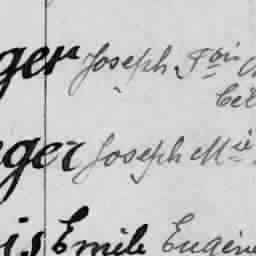 ger Joseph, Fois
Cél
ger Joseph Mie
is Emile Eugène